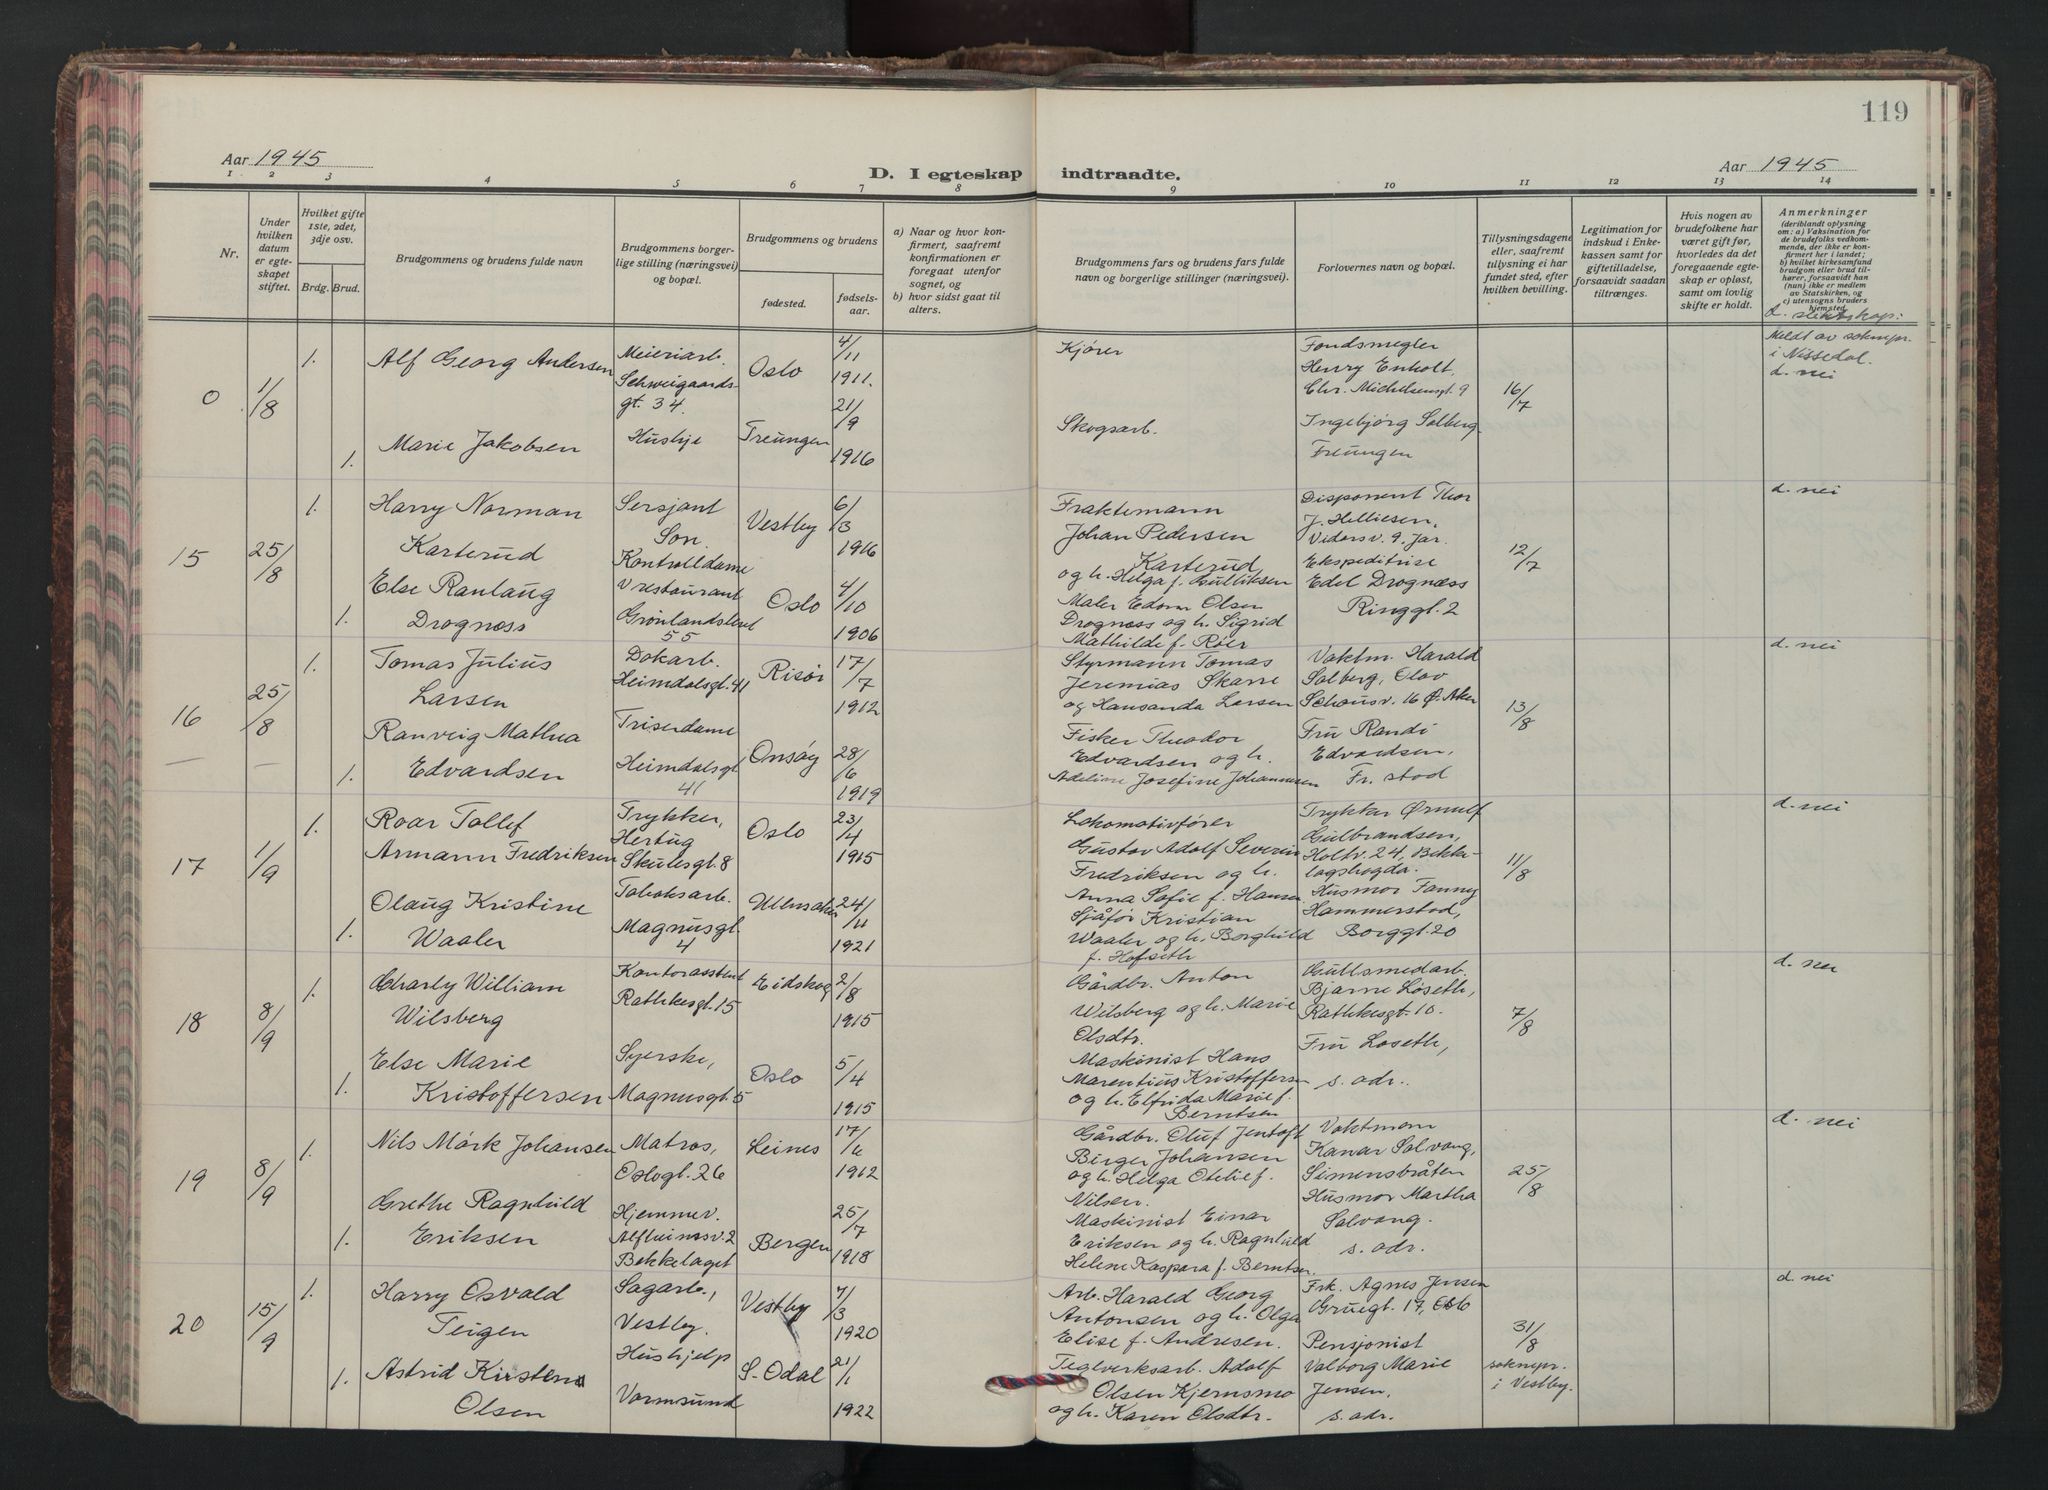 119
Aar 1945
Aar 1945
D. I egteskap indtraadte.
1 2 3 4 5 6 7 8 9 10 11 12 13 14
Nr.
Under hvilken datum er egteskapet stiftet.
Hvilket gifte 1ste, 2det, 3dje osv.
Brdg. Brud.
Brudgommens og brudens fulde navn
Brudgommens borgerlige stilling (næringsvei) og bopæl.
Brudgommens og brudens
fødested.
fødselsaar.
a) Naar og hvor konfirmert, saafremt konfirmationen er foregaat utenfor sognet, og
b) hvor sidst gaat til alters.
Brudgommens fars og brudens fars fulde navn og borgerlige stillinger (næringsvei).
Forlovernes navn og bopæl.
Tillysningsdagene eller, saafremt tillysning ei har fundet sted, efter hvilken bevilling.
Legitimation for indskud i Enkekassen samt for giftetilladelse, forsaavidt saadan tiltrænges.
Hvis nogen av brudefolkene har været gift før, hvorledes da det foregaaende egteskap er opløst, samt om lovlig skifte er holdt.
Anmerkninger
(deriblandt oplysning om: a) Vaksination for de brudefolks vedkommende, der ikke er konfirmert her i landet;
b) hvilket kirkesamfund brudgom eller brud tilhører, forsaavidt han (hun) ikke er medlem av Statskirken, og
c) utensogns bruders hjemsted.
d. slektskap:
0
1/8
1.
Alf Georg Andersen
Meieriarb.
Schweigaards-
gt. 34.
Oslo
4/11
1911.
Kjører
Fondsmegler
Henry Enholt,
Chr. Michelsensgt. 9
16/7
Meldt av soknepr.
i Nissedal.
d. nei
1.
Marie Jakobsen
Hushje
Treungen
21/9
1916
Skogsarb.
Ingebjørg Solberg
Treungen
15
25/8
1.
Harry Norman
Karterud
Sersjant
Son.
Vestby
6/3
1916
Fraktemann
Johan Pedersen
Karterud
og h. Helga f. Gulliksen
Disponent Thor
J. Helliesen,
Vidars v. 9, Jar.
12/7
d. nei
1.
Else Ranlaug
Drogness
Kontrolldame
v restaurant
Grønlandsleret
55
Oslo
4/10
1906
Maler Edom Olsen
Drogness og h. Sigrid
Mathilde f. Røer
Ekspeditrise
Edel Drogness
Ringgt. 2
16
25/8
1.
Tomas Julius
Larsen
Dokarb.
Heimdalsgt. 41
Risør
17/7
1912
Styrmann Tomas
Jeremias Skarre
og Hansanda Larsen
Vaktm. Harald
Solberg, Olav
Schousv. 16 Ø. Aker
13/8
d. nei
1.
Ranveig Mathea
Edvardsen
Friserdame
Heimdalsgt
41
Onsøy
28/6
1919
Fisker Theodor
Edvardsen og h.
Adeline Josefine Johannesen
Fru Randi
Edvardsen,
Fr. stad
17
1/9
1.
Roar Tollef
Armann Fredriksen
Trykker,
Hertug
Skulesgt. 8
Oslo
23/4
1915
Lokomotivfører
Gustav Adolf Severin
Fredriksen og h.
Anna Sofie f. Hansen
Trykker Ørnulf
Gulbrandsen,
Holtv. 24, Bekke-
lagshøgda.
11/8
d. nei
1.
Olaug Kristine
Waaler
Tobaksarb.
Magnusgt.
4
Ullensaker
24/11
1921
Sjåfør Kristian
Waaler og h. Borghild
f. Hofseth
Husmor Fanny
Hammerstad,
Borggt. 20
18
8/9
1.
Charly William
Wilsberg
Kontorassistent
Rathkesgt. 15
Eidskog
2/8
1915
Gårdbr. Anton
Wilsberg og h. Marie
Olsdtr.
Gullsmedarb.
Bjarne Løseth,
Rathkesgt. 10.
7/8
d. nei
1.
Else Marie
Kristoffersen
Syerske,
Magnusgt. 5
Oslo
5/4
1915
Maskinist Hans
Marentius Kristoffersen
og h. Elfrida Marie f.
Berntsen
Fru Løseth,
s. adr.
19
8/9
1.
Nils Mørk Johansen
Matros,
Oslogt. 26
Leines
17/6
1912
Gårdbr. Oluf Jentoft
Birger Johansen
og h. Helga Otelie f.
Nilsen.
Vaktmann
Kanar Solvang,
Simensbråten
25/8
d. nei
1.
Grethe Ragnhild
Eriksen
Hjemmev.
Alfheimsv. 2
Bekkelaget
Bergen
25/7
1918
Maskinist Einar
Eriksen og h. Ragnhild
Helene Kaspara f. Berntsen.
Husmor Martha
Solvang.
s. adr.
20
15/9
1.
Harry Osvald
Teigen
Sagarb.,
Vestby.
Vestby
7/3
1920
Arb. Harald Georg
Antonsen og h. Olga
Elise f. Andresen.
Frk. Agnes Jensen
Gruegt. 17, Oslo
31/8
soknepr.
i Vestby.
d. nei
1.
Astrid Kirstena
Olsen
Hushjelp
Vormsund
S-Odal
21/1
1922
Teglverksarb. Adolf
Olsen Kjernsmo
og h. Karen Olsdtr.
Pensjonist
Valborg Marie
Jensen,
s. adr.